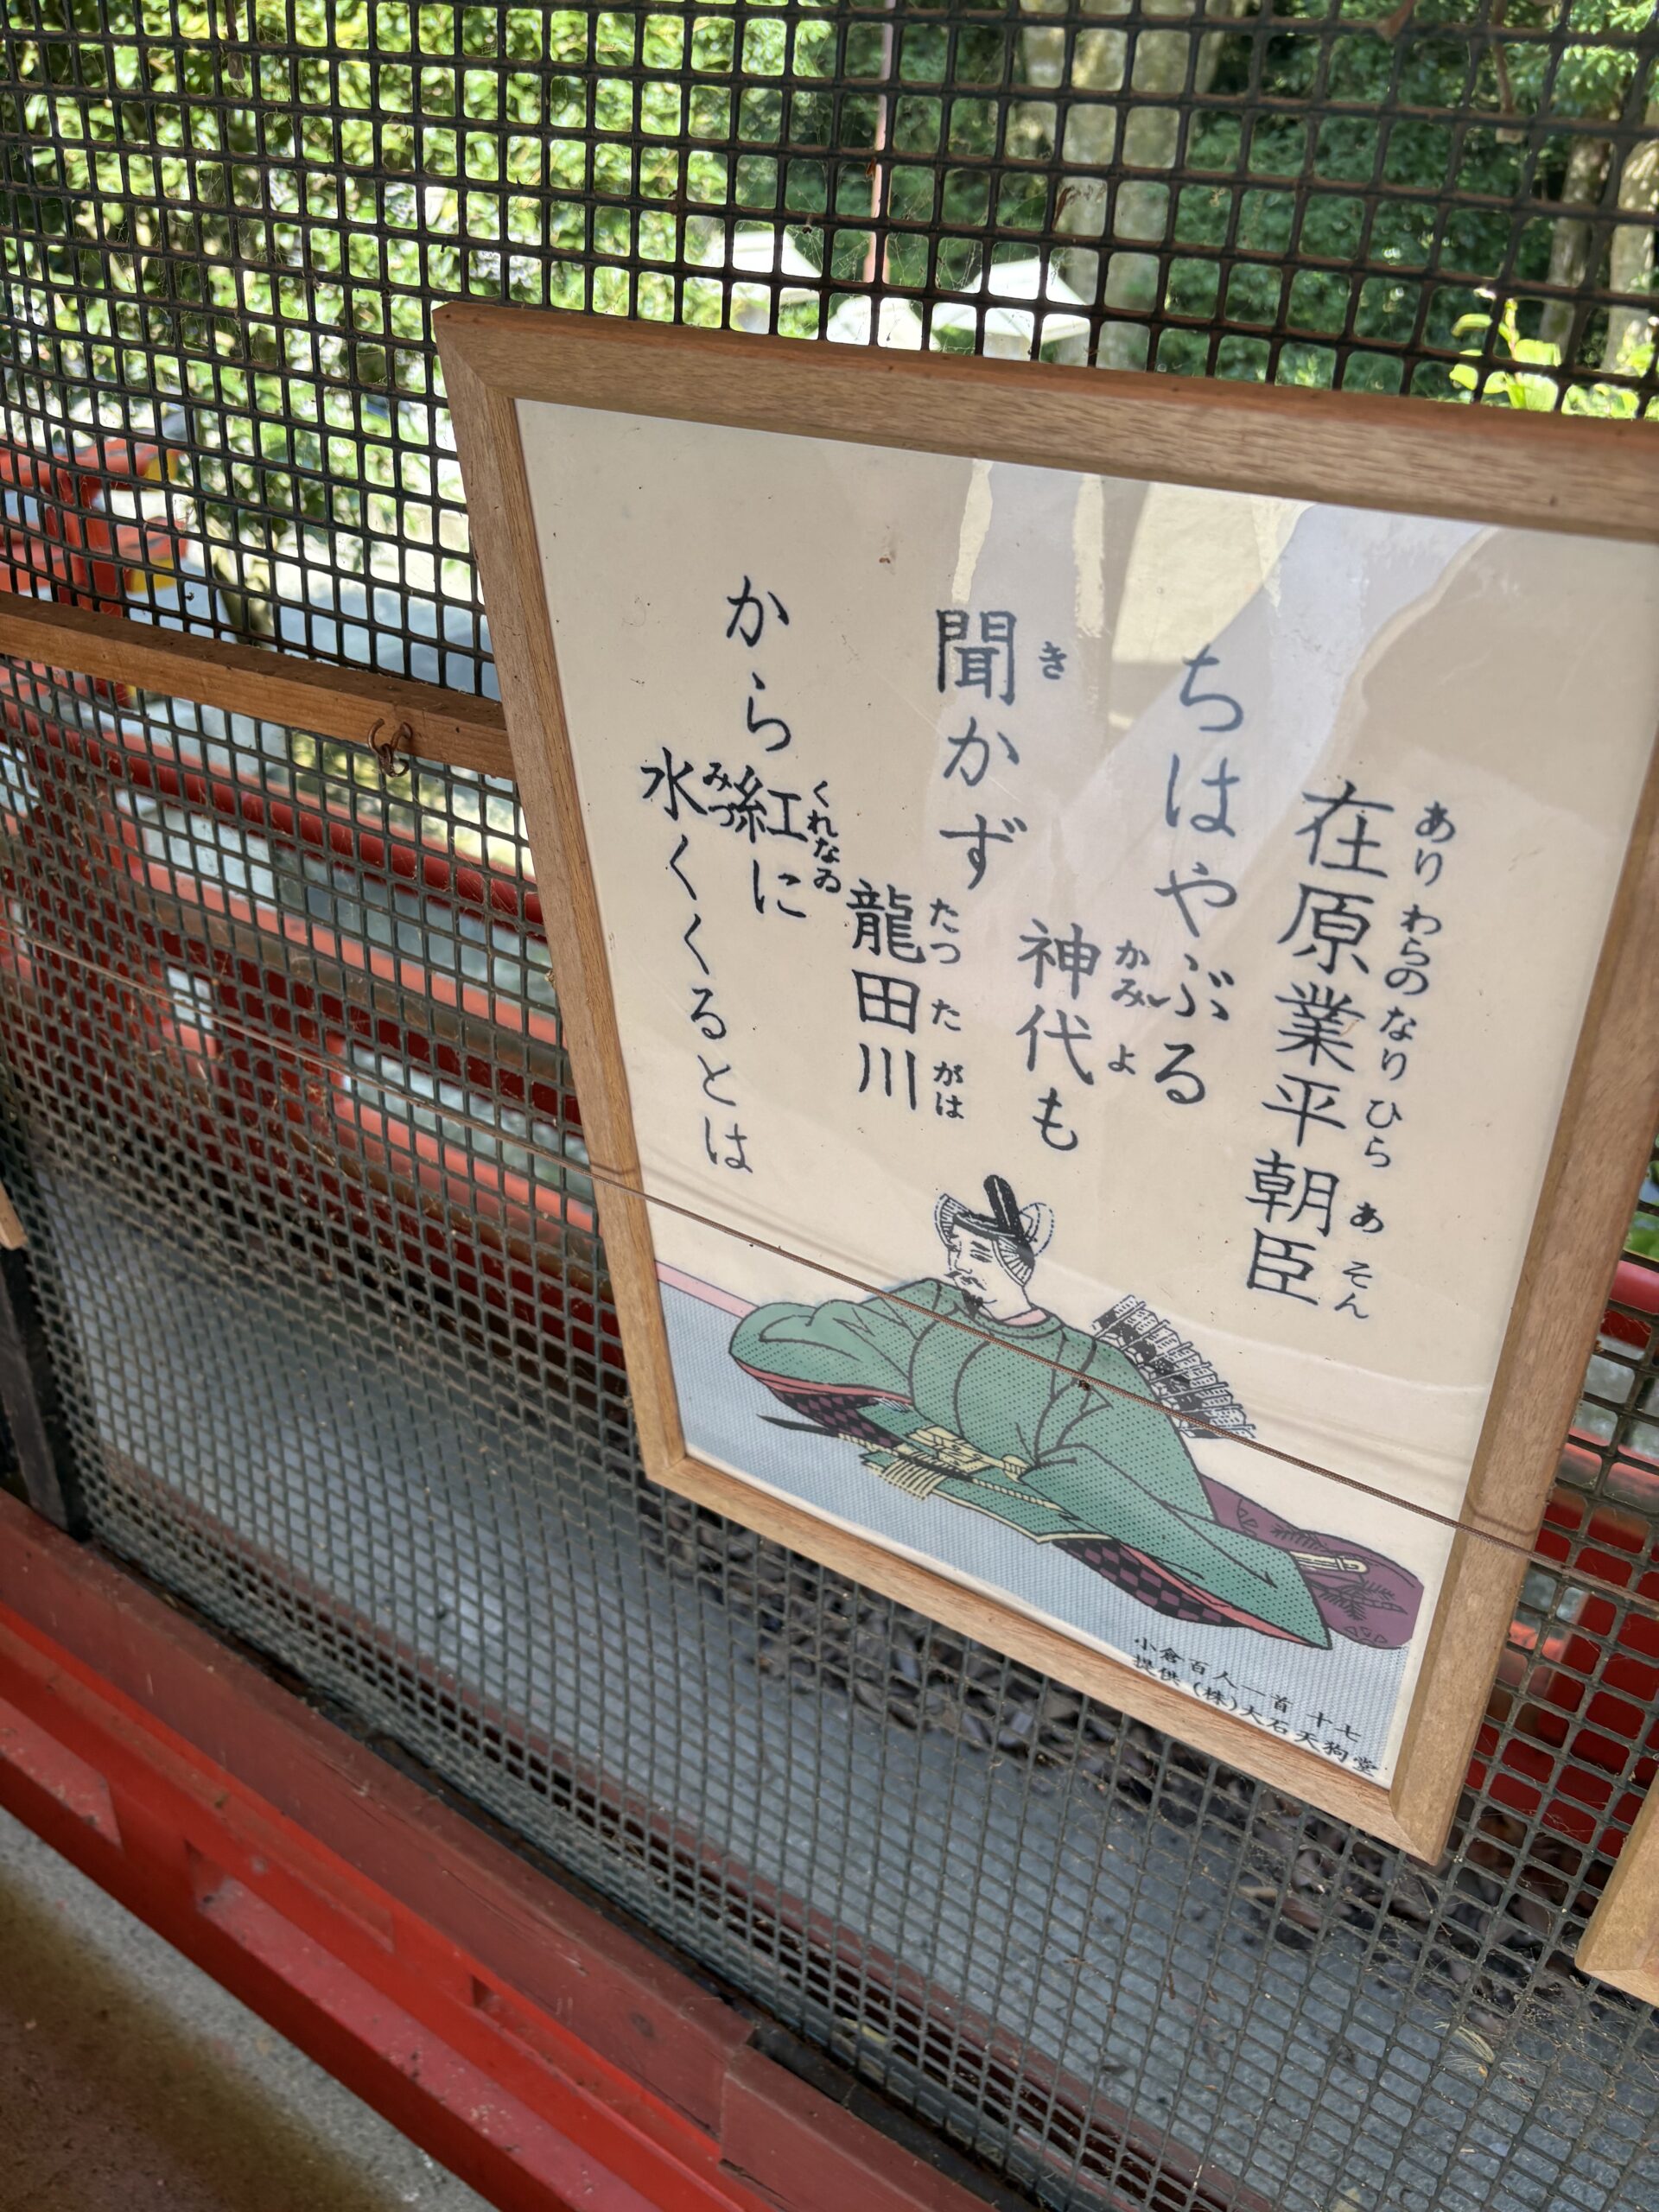 在原業平朝臣
ありわらのなりひらあそん
ちはやぶる
神代も
かみよ
聞かず
き
龍田川
たつたがは
から紅に
くれなゐ
水くくるとは
みづ
小倉百人一首 十七
提供(株)大石天狗堂